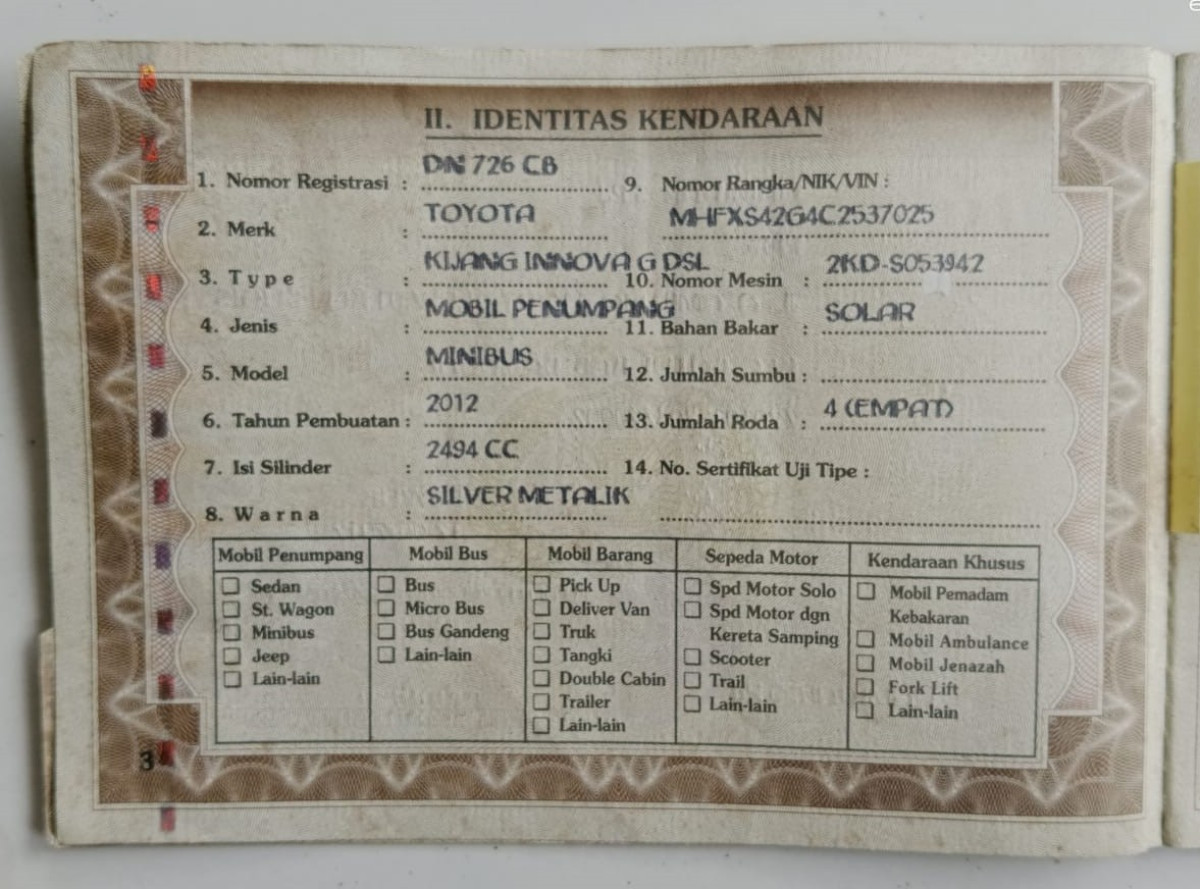 II. IDENTITAS KENDARAAN
1. Nomor Registrasi : DN 726 CB
2. Merk : TOYOTA
3. Type : KIJANG INNOVA G DSL
4. Jenis : MOBIL PENUMPANG
5. Model : MINIBUS
6. Tahun Pembuatan : 2012
7. Isi Silinder : 2494 CC
8. Warna : SILVER METALIK
9. Nomor Rangka/NIK/VIN :
MHFXS42G4C2537025
10. Nomor Mesin : 2KD-S053942
11. Bahan Bakar : SOLAR
12. Jumlah Sumbu :
13. Jumlah Roda : 4 (EMPAT)
14. No. Sertifikat Uji Tipe :
Mobil Penumpang
Sedan
St. Wagon
Minibus
Jeep
Lain-lain
Mobil Bus
Bus
Micro Bus
Bus Gandeng
Lain-lain
Mobil Barang
Pick Up
Deliver Van
Truk
Tangki
Double Cabin
Trailer
Lain-lain
Sepeda Motor
Spd Motor Solo
Spd Motor dgn
Kereta Samping
Scooter
Trail
Lain-lain
Kendaraan Khusus
Mobil Pemadam
Kebakaran
Mobil Ambulance
Mobil Jenazah
Fork Lift
Lain-lain
3